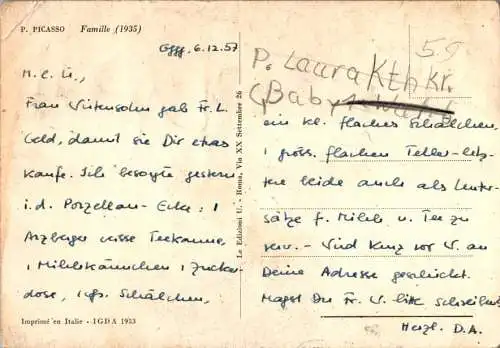 P. PICASSO Famille (1935)
Ggg. 6.12.57
M. l. U.,
Frau Wirtensohn gab Fr. L.
Geld, damit sie Dir etwas
kaufe. Ich besorgte gestern
i. d. Porzellan-Ecke: 1
Arzberger weisse Teekanne,
1 Milchkännchen 1 Zucker-
dose, 1 gr. Schälchen,
Imprimé en Italie - IGDA 1953
Le Edizioni U. - Roma, Via XX Settembre 26
59
P. Laura KEA Kr.
Baby
ein kl. flaches Schälchen,
1 gross. flachen Teller - letz-
tere beide auch als Unter-
sätze f. Milch u. Tee zu
verw. - Wird kurz vor W. an
Deine Adresse geschickt.
Magst Du Fr. W. bitte schreiben
Herzl. D. A.